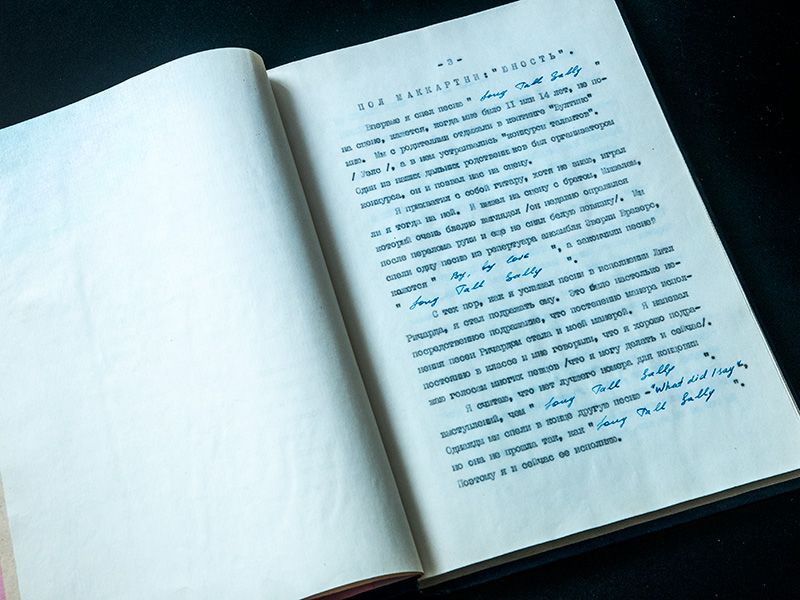 -3-
ПОЛ МАККАРТНИ: "ЮНОСТЬ".
Впервые я спел песню " Long Tall Sally "
на сцене, кажется, когда мне было 11 или 14 лет, не по-
мню. Мы с родителями отдыхали в кэмпинге "Бултинс"
/ Уэлс /, а в нем устраивались "конкурсы талантов".
Один из наших дальних родственников был организатором
конкурса, он и позвал нас на сцену.
Я прихватил с собой гитару, хотя не знаю, играл
ли я тогда на ней. Я вышел на сцену с братом, Майклом,
который очень бледно выглядел /он недавно оправился
после перелома руки и еще не снял белую повязку/. Мы
спели одну песню из репертуара ансамбля Эверли Бразерс,
кажется " By, by love ", а закончили песней
" Long Tall Sally ".
С тех пор, как я услышал песни в исполнении Литл
Ричарда, я стал подражать ему. Это было настолько не-
посредственное подражание, что постепенно манера испол-
нения песен Ричардом стала и моей манерой. Я напевал
постоянно в классе и мне говорили, что я хорошо подра-
жаю голосам многих певцов /что я могу делать и сейчас/.
Я считаю, что нет лучшего номера для концовки
выступлений, чем " Long Tall Sally ".
Однажды мы спели в конце другую песню - "What did I say",
но она не прошла так, как " Long Tall Sally ".
Поэтому я и сейчас ее исполняю.